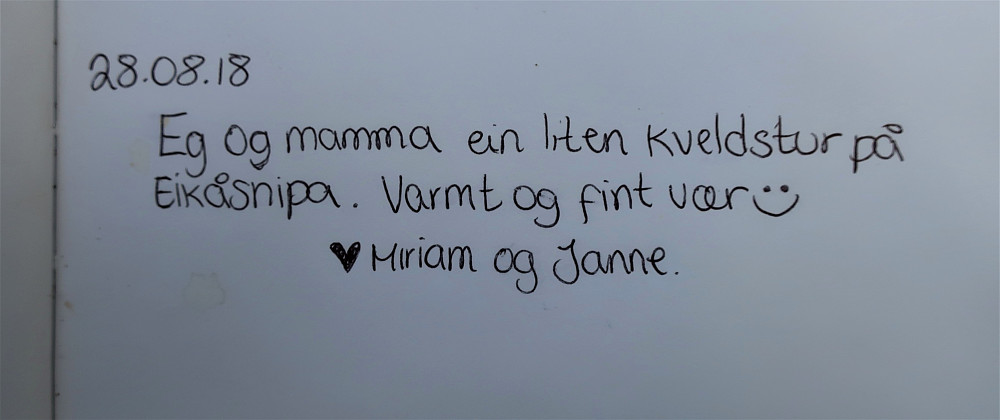 28.08.18
Eg og mamma ein liten kveldstur på
Eikåsnipa. Varmt og fint vær :)
♥ Miriam og Janne.